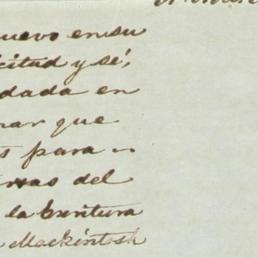 nuevo en su
icitud y sé,
dada en
nar que
s para
rras del
la Escritura
Mackintosh